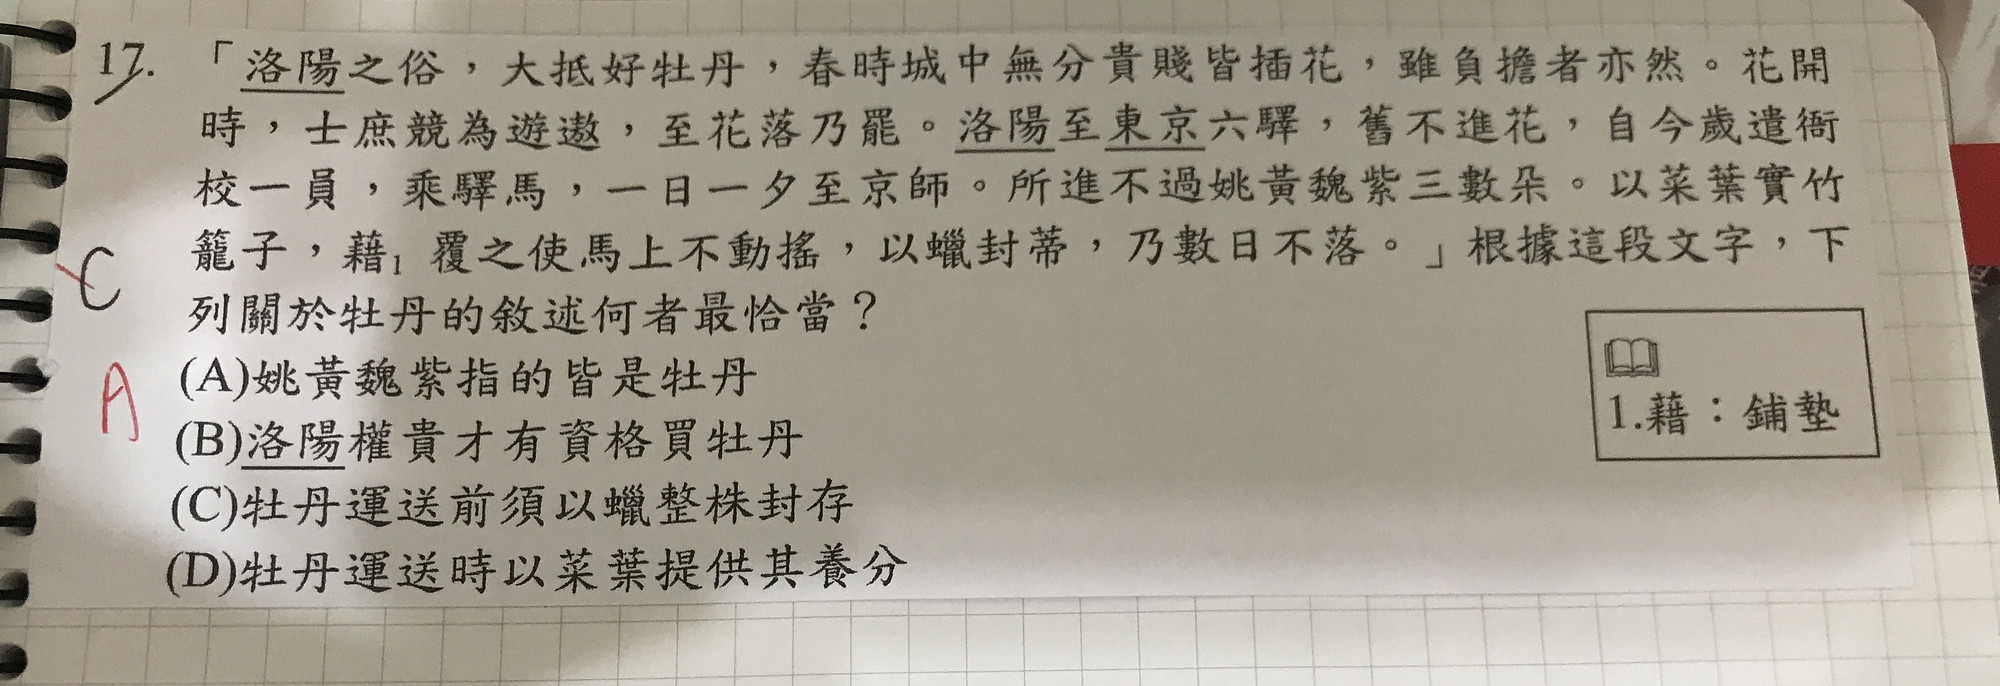 17. 「洛陽之俗，大抵好牡丹，春時城中無分貴賤皆插花，雖負擔者亦然。花開
時，士庶競為遊遨，至花落乃罷。洛陽至東京六驛，舊不進花，自今歲遣衙
校一員，乘驛馬，一日一夕至京師。所進不過姚黃魏紫三數朵。以菜葉實竹
籠子，藉1 覆之使馬上不動搖，以蠟封蒂，乃數日不落。」根據這段文字，下
列關於牡丹的敘述何者最恰當？
C
(A)姚黃魏紫指的皆是牡丹
A
(B)洛陽權貴才有資格買牡丹
(C)牡丹運送前須以蠟整株封存
(D)牡丹運送時以菜葉提供其養分
1.藉：鋪墊